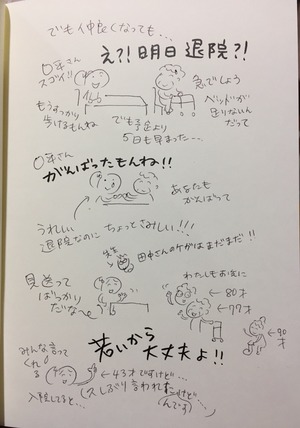 でも仲良くなっても…
え?!明日退院?!
〇平さん
スゴイ!!
もうすっかり
歩けるもんね
急でしょう
ベッドが
足りないん
だって
でも予定より
5日も早まった…
〇平さん
がんばったもんね!!
あなたも
がんばって
うれしい
退院なのに ちょっとさみしい!!!
先生
田中さんのケガはまだまだ!!
見送って
ばっかり
だな〜
わたしもお先に
←80才
←77才
←90才
若いから
大丈夫よ!!
みんな言って
くれる
←43才ですけど…
入院してると…
(久しぶり言われた
んです)